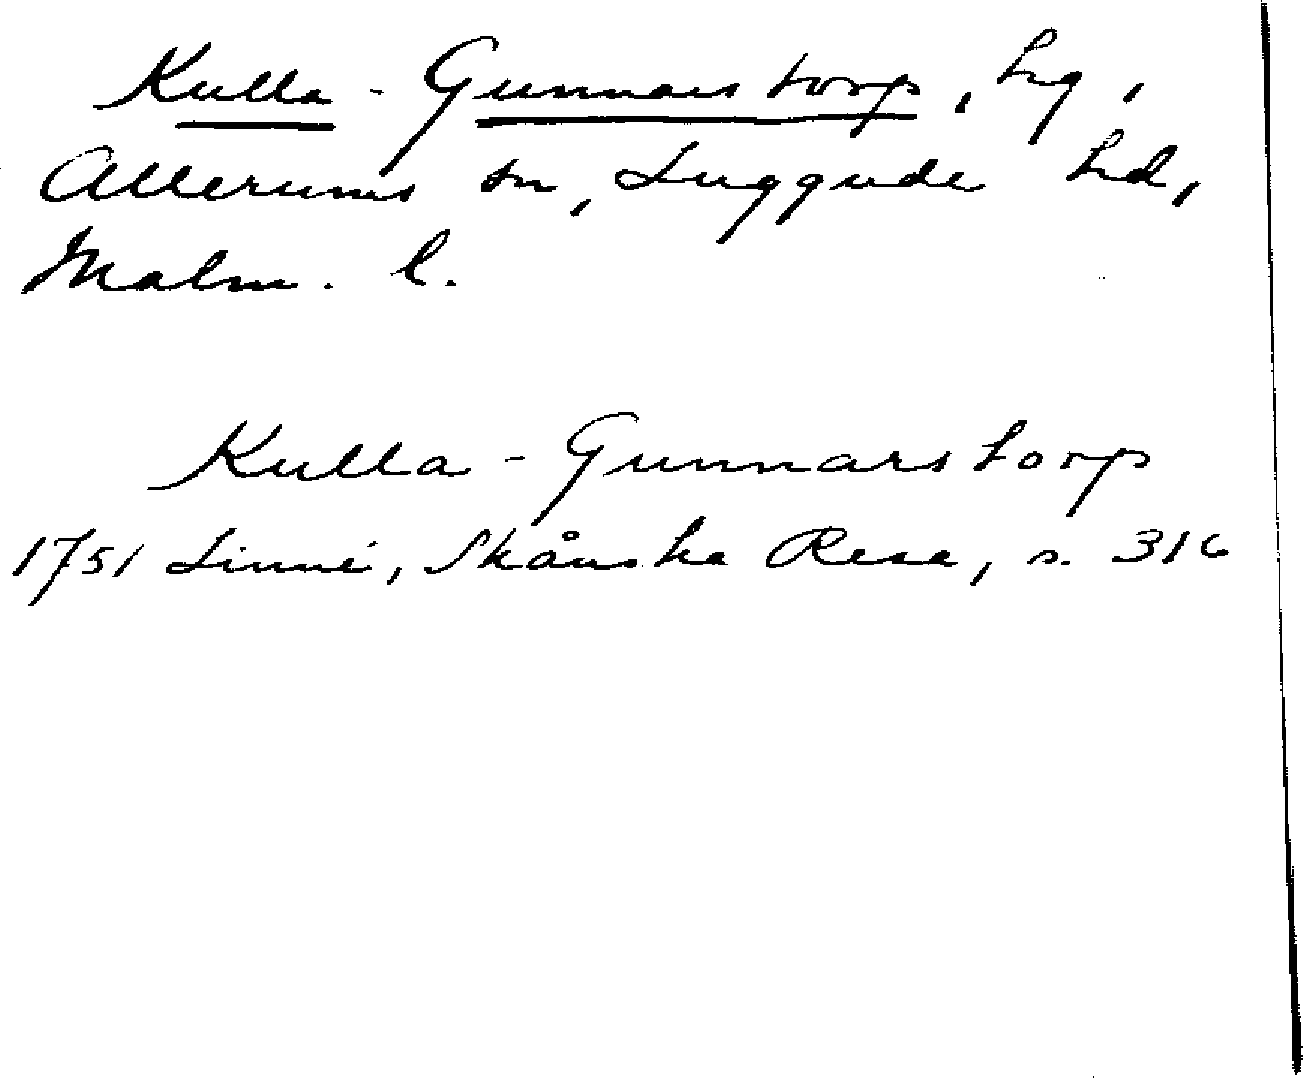 Kulla - Gunnarstorp, hg,
Allerums sn, Luggude hd,
Malm. l.
Kulla - Gunnarstorp
1751 Linné, Skånska Resa, s. 316